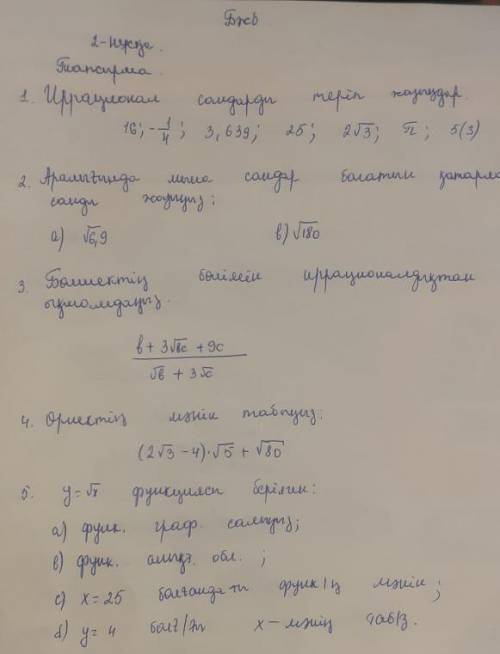 БжБ
2-нұсқа.
Тапсырма.
1. Иррационал сандарды теріп жазыңдар.
16; -1/4; 3,639; 25; 2√3; π; 5(3)
2. Аралығында мына сандар болатын қатарлас
санды жазыңыз:
а) √6,9 в) √180
3. Бөлшектің бөлімін иррационалдықтан
(в + 3√вс + 9с) / (√в + 3√с)
4. Өрнектің мәнін табыңыз:
(2√3 - 4)·√5 + √80
5. y=√x функциясы берілген:
а) функ. граф. салыңыз;
в) функ. анық. обл. ;
с) x = 25 болғандағы функ/ң мәнін;
d) y = 4 болғ/ғы x - мәнін таб/з.